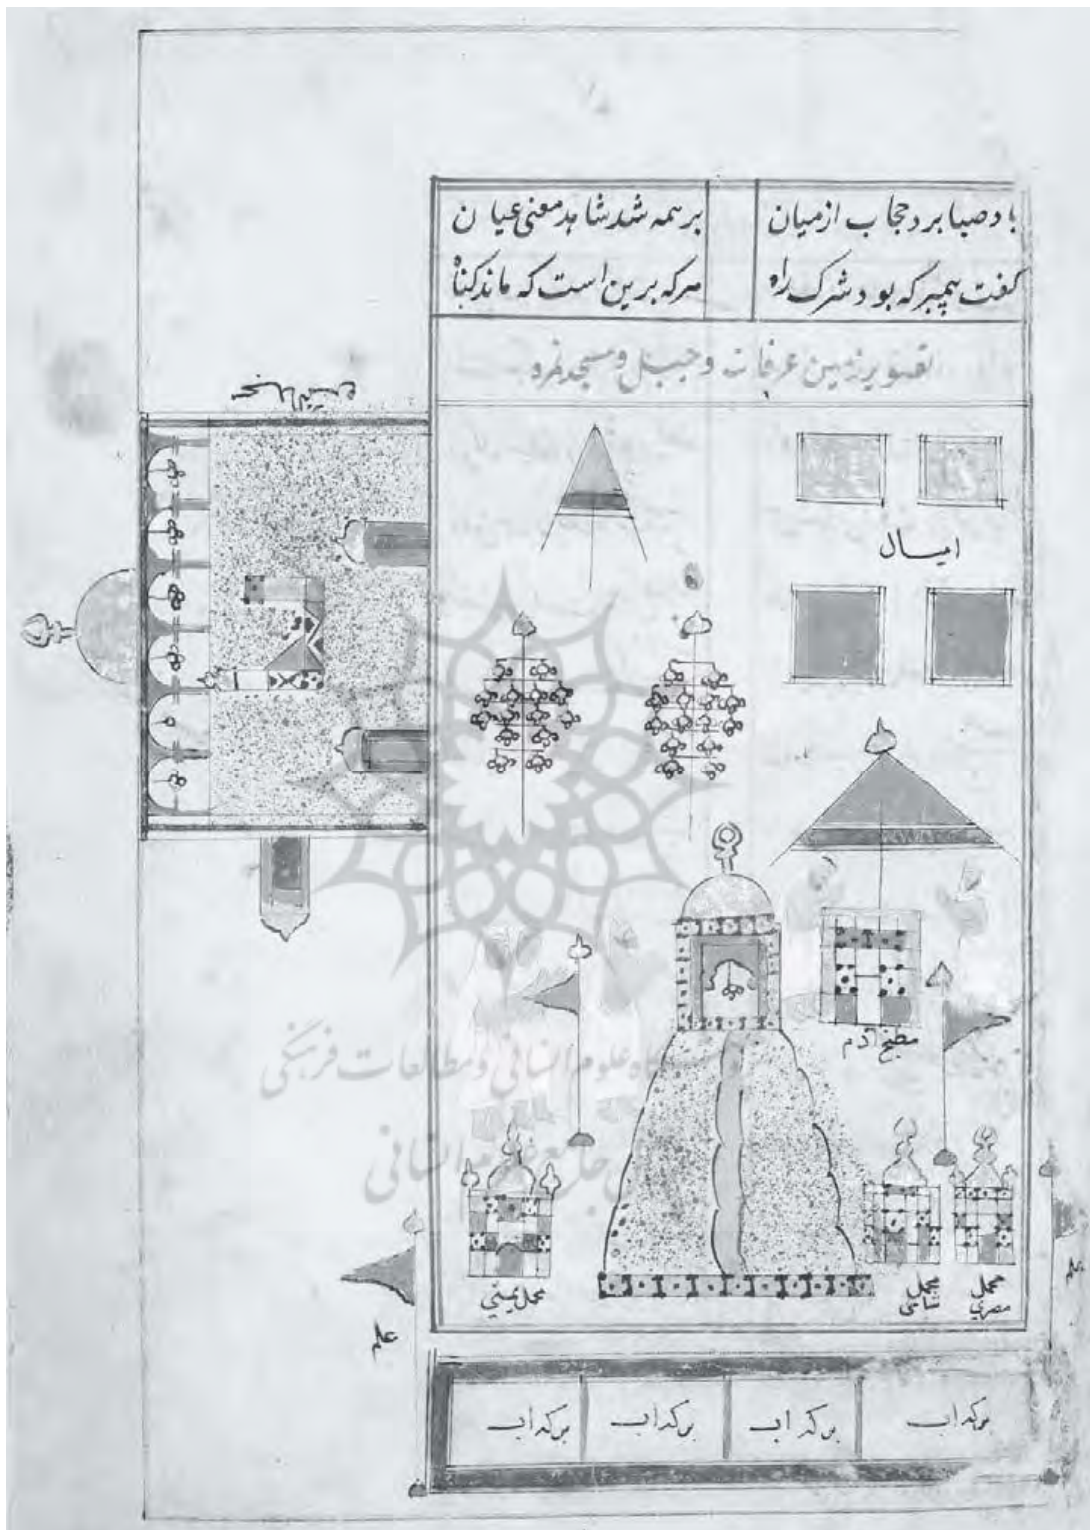 باد صبا برد حجاب از میان	بر همه شد شاهد معنی عیان
گفت پیمبر که بود شرک راه	هر که برین است که ماند کناه
تصویر زمین عرفات و جبل و مسجد نمره
امیال
مطبخ آدم
محمل یمنی
محمل شامی
محمل مصری
علم
علم
برکه آب
برکه آب
برکه آب
برکه آب
پژوهشگاه علوم انسانی و مطالعات فرهنگی
پرتال جامع علوم انسانی